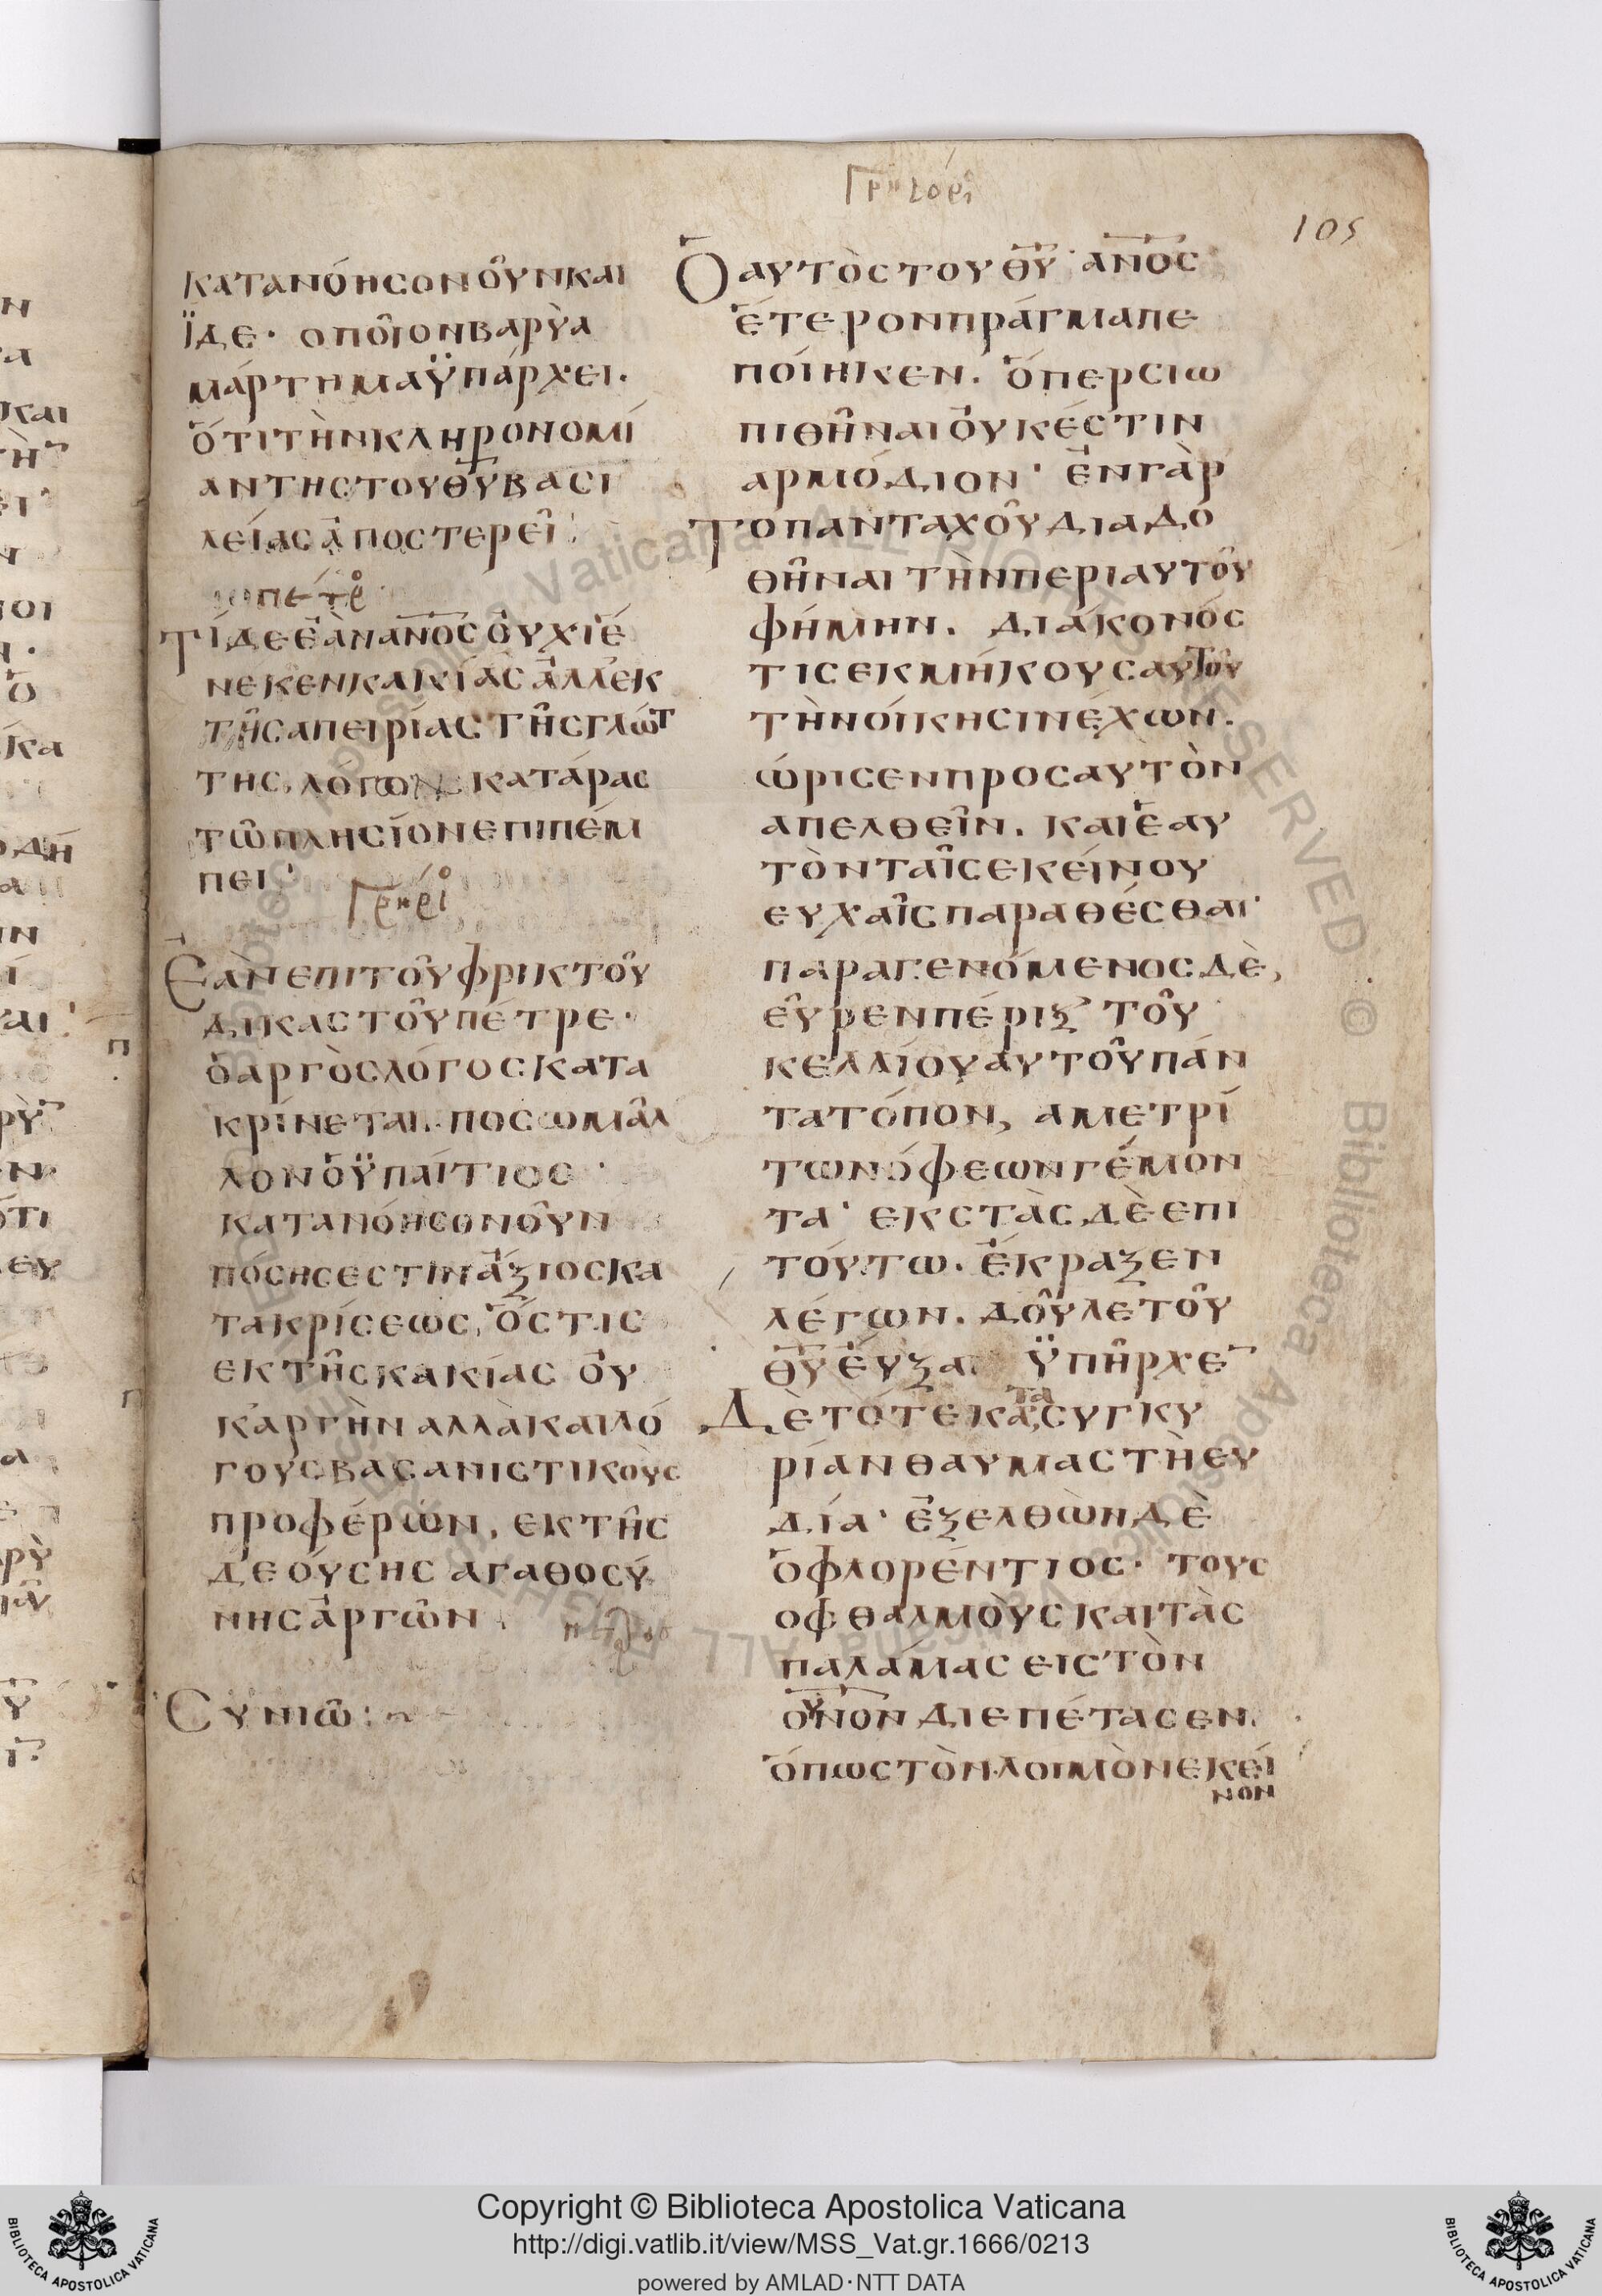 Γρηγόρι
105
κατανόησον οὖν καὶ
ΐδε· ὁποῖον βαρὺ ἁ
μάρτημα ϋπάρχει·
ὅτι τὴν κληρονομί
αν τῆς τοῦ θ̅υ̅ βασι
λείας ἀποστερεῖ·
πέτρο
Τί δὲ ἐὰν α̅ν̅ο̅ς̅ οὐχὶ ἕ
νεκεν κακίας ἀλλ' ἐκ
τῆς ἀπειρίας τῆς γλώτ
της, λόγον κατάρας
τῷ πλησίον ἐπιπέμ
πει·
Γρηγόρι
Ἐὰν ἐπὶ τοῦ φρικτοῦ
δικαστοῦ πέτρε·
ὁ ἀργὸς λόγος κατα
κρίνεται· πόσω μᾶλ
λον ὁ ϋπαίτιος·
κατανόησον οὖν
πόσης ἐστὶν ἄξιος κα
τακρίσεως, ὅστις
ἐκ τῆς κακίας οὐ
κ ἀργὴν ἀλλὰ καὶ λό
γους βασανιστικοὺς
προφέρων, ἐκ τῆς
δεούσης ἀγαθοσύ
νης ἀργῶν·
πέτρος
Συνιῶ:
Ὁ αὐτὸς τοῦ θ̅υ̅ α̅ν̅ο̅ς̅
ἕτερον πράγμα πε
ποίηκεν· ὅπερ σιω
πιθῆναι οὐκ ἔστιν
ἁρμόδιον· ἐν γὰρ
τὸ πανταχοῦ διαδο
θῆναι τὴν περὶ αὐτοῦ
φήμην· διάκονός
τις ἐκ μήκους αὐτοῦ
τὴν οἴκησιν ἔχων·
ὥρισεν πρὸς αὐτὸν
ἀπελθεῖν· καὶ ἑαυ
τὸν ταῖς ἐκείνου
εὐχαῖς παραθέσθαι·
παραγενόμενος δὲ,
εὗρεν πέριξ τοῦ
κελλίου αὐτοῦ πάν
τα τόπον, ἀμετρί
των ὄφεων γέμον
τα· ἐκστὰς δὲ ἐπὶ
τούτω· ἔκραξεν
λέγων· δοῦλε τοῦ
θ̅υ̅ εὖξαι ϋπῆρχε̅
δὲ τότε κατὰ συγκυ
ρίαν θαυμαστὴ εὐ
δία· ἐξελθὼν δὲ
ὁ φλορέντιος· τοὺς
ὀφθαλμοὺς καὶ τὰς
παλάμας εἰς τὸν
ο̅υ̅ν̅ο̅ν̅ διεπέτασεν·
ὅπως τὸν λοιμὸν ἐκεῖ
νον
Copyright © Biblioteca Apostolica Vaticana
http://digi.vatlib.it/view/MSS_Vat.gr.1666/0213
powered by AMLAD·NTT DATA
BIBLIOTECA APOSTOLICA VATICANA
BIBLIOTECA APOSTOLICA VATICANA